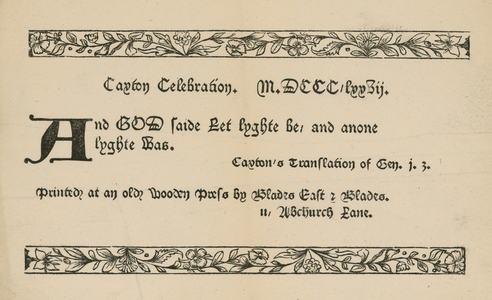 Caxton Celebration. M.DCCC/lxxvij.
And GOD saide Let lyghte be/ and anone
lyghte was.
Caxton's Translation of Gen. j. 3.
Printed at an old wooden Press by Blades East & Blades.
11/ Abchurch Lane.